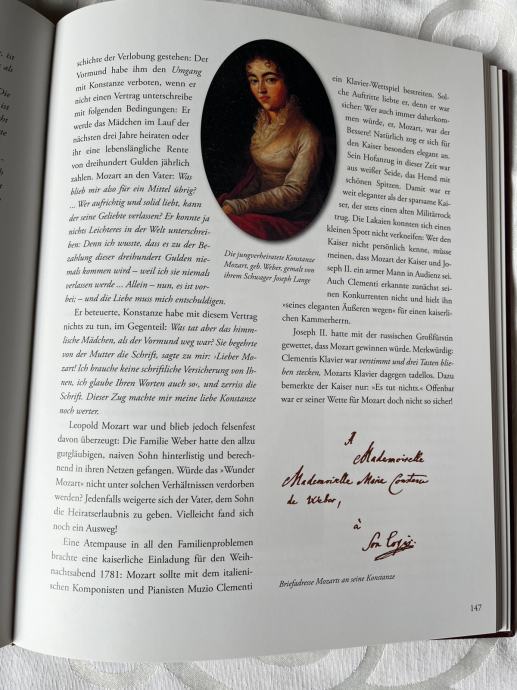 schichte der Verlobung gestehen: Der
Vormund habe ihm den Umgang
mit Konstanze verboten, wenn er
nicht einen Vertrag unterschreibe
mit folgenden Bedingungen: Er
werde das Mädchen im Lauf der
nächsten drei Jahre heiraten oder
ihr eine lebenslängliche Rente
von dreihundert Gulden jährlich
zahlen. Mozart an den Vater: Was
blieb mir also für ein Mittel übrig?
... Wer aufrichtig und solid liebt, kann
der seine Geliebte verlassen? Er konnte ja
nichts Leichteres in der Welt unterschrei-
ben: Denn ich wusste, dass es zu der Be-
zahlung dieser dreihundert Gulden nie-
mals kommen wird – weil ich sie niemals
verlassen werde ... Allein – nun, es ist vor-
bei; – und die Liebe muss mich entschuldigen.
Er beteuerte, Konstanze habe mit diesem Vertrag
nichts zu tun, im Gegenteil: Was tat aber das himm-
lische Mädchen, als der Vormund weg war? Sie begehrte
von der Mutter die Schrift, sagte zu mir: ›Lieber Mo-
zart! Ich brauche keine schriftliche Versicherung von Ih-
nen, ich glaube Ihren Worten auch so‹, und zerriss die
Schrift. Dieser Zug machte mir meine liebe Konstanze
noch werter.
Leopold Mozart war und blieb jedoch felsenfest
davon überzeugt: Die Familie Weber hatte den allzu
gutgläubigen, naiven Sohn hinterlistig und berech-
nend in ihren Netzen gefangen. Würde das »Wunder
Mozart« nicht unter solchen Verhältnissen verdorben
werden? Jedenfalls weigerte sich der Vater, dem Sohn
die Heiratserlaubnis zu geben. Vielleicht fand sich
noch ein Ausweg!
Eine Atempause in all den Familienproblemen
brachte eine kaiserliche Einladung für den Weih-
nachtsabend 1781: Mozart sollte mit dem italieni-
schen Komponisten und Pianisten Muzio Clementi
Die jungverheiratete Konstanze
Mozart, geb. Weber, gemalt von
ihrem Schwager Joseph Lange
ein Klavier-Wettspiel bestreiten. Sol-
che Auftritte liebte er, denn er war
sicher: Wer auch immer daherkom-
men würde, er, Mozart, war der
Bessere! Natürlich zog er sich für
den Kaiser besonders elegant an.
Sein Hofanzug in dieser Zeit war
aus weißer Seide, das Hemd mit
schönen Spitzen. Damit war er
weit eleganter als der sparsame Kai-
ser, der stets einen alten Militärrock
trug. Die Lakaien konnten sich einen
kleinen Spott nicht verkneifen: Wer den
Kaiser nicht persönlich kenne, müsse
meinen, dass Mozart der Kaiser und Jo-
seph II. ein armer Mann in Audienz sei.
Auch Clementi erkannte zunächst sei-
nen Konkurrenten nicht und hielt ihn
»seines eleganten Äußeren wegen« für einen kaiserli-
chen Kammerherrn.
Joseph II. hatte mit der russischen Großfürstin
gewettet, dass Mozart gewinnen würde. Merkwürdig:
Clementis Klavier war verstimmt und drei Tasten blie-
ben stecken, Mozarts Klavier dagegen tadellos. Dazu
bemerkte der Kaiser nur: »Es tut nichts.« Offenbar
war er seiner Wette für Mozart doch nicht so sicher!
A
Mademoiselle
Mademoiselle Marie Constance
de Weber,
à
Son Logis
Briefadresse Mozarts an seine Konstanze
147